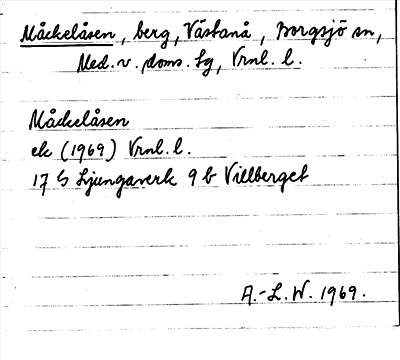 Måckelåsen, berg, Västanå, Borgsjö sn,
Med. v. doms. sg, Vrnl. l.
Måckelåsen
ek (1969) Vrnl. l.
17 G Ljungaverk 9 b Villberget
A.-L. W. 1969.